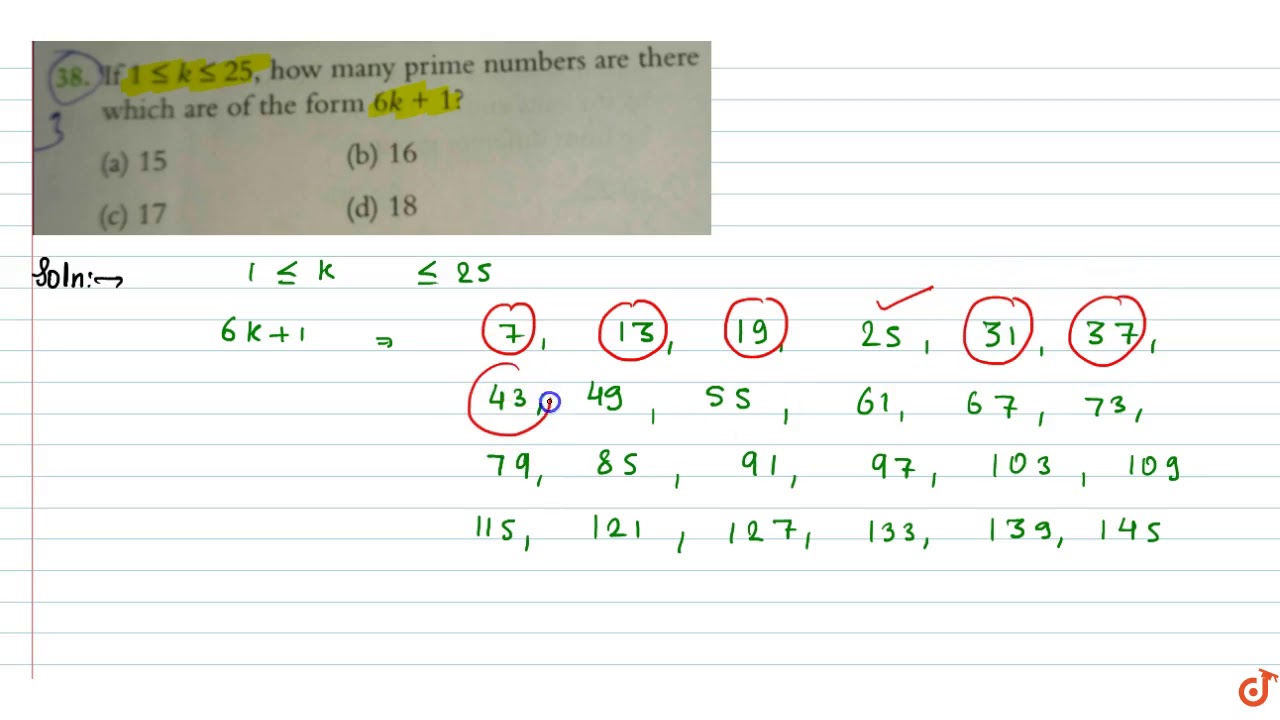 38. If 1 ≤ k ≤ 25, how many prime numbers are there
which are of the form 6k + 1?
3
(a) 15 (b) 16
(c) 17 (d) 18
Soln:→ 1 ≤ k ≤ 25
6k+1 ⇒ 7, 13, 19, 25, 31, 37,
43, 49, 55, 61, 67, 73,
79, 85, 91, 97, 103, 109
115, 121, 127, 133, 139, 145